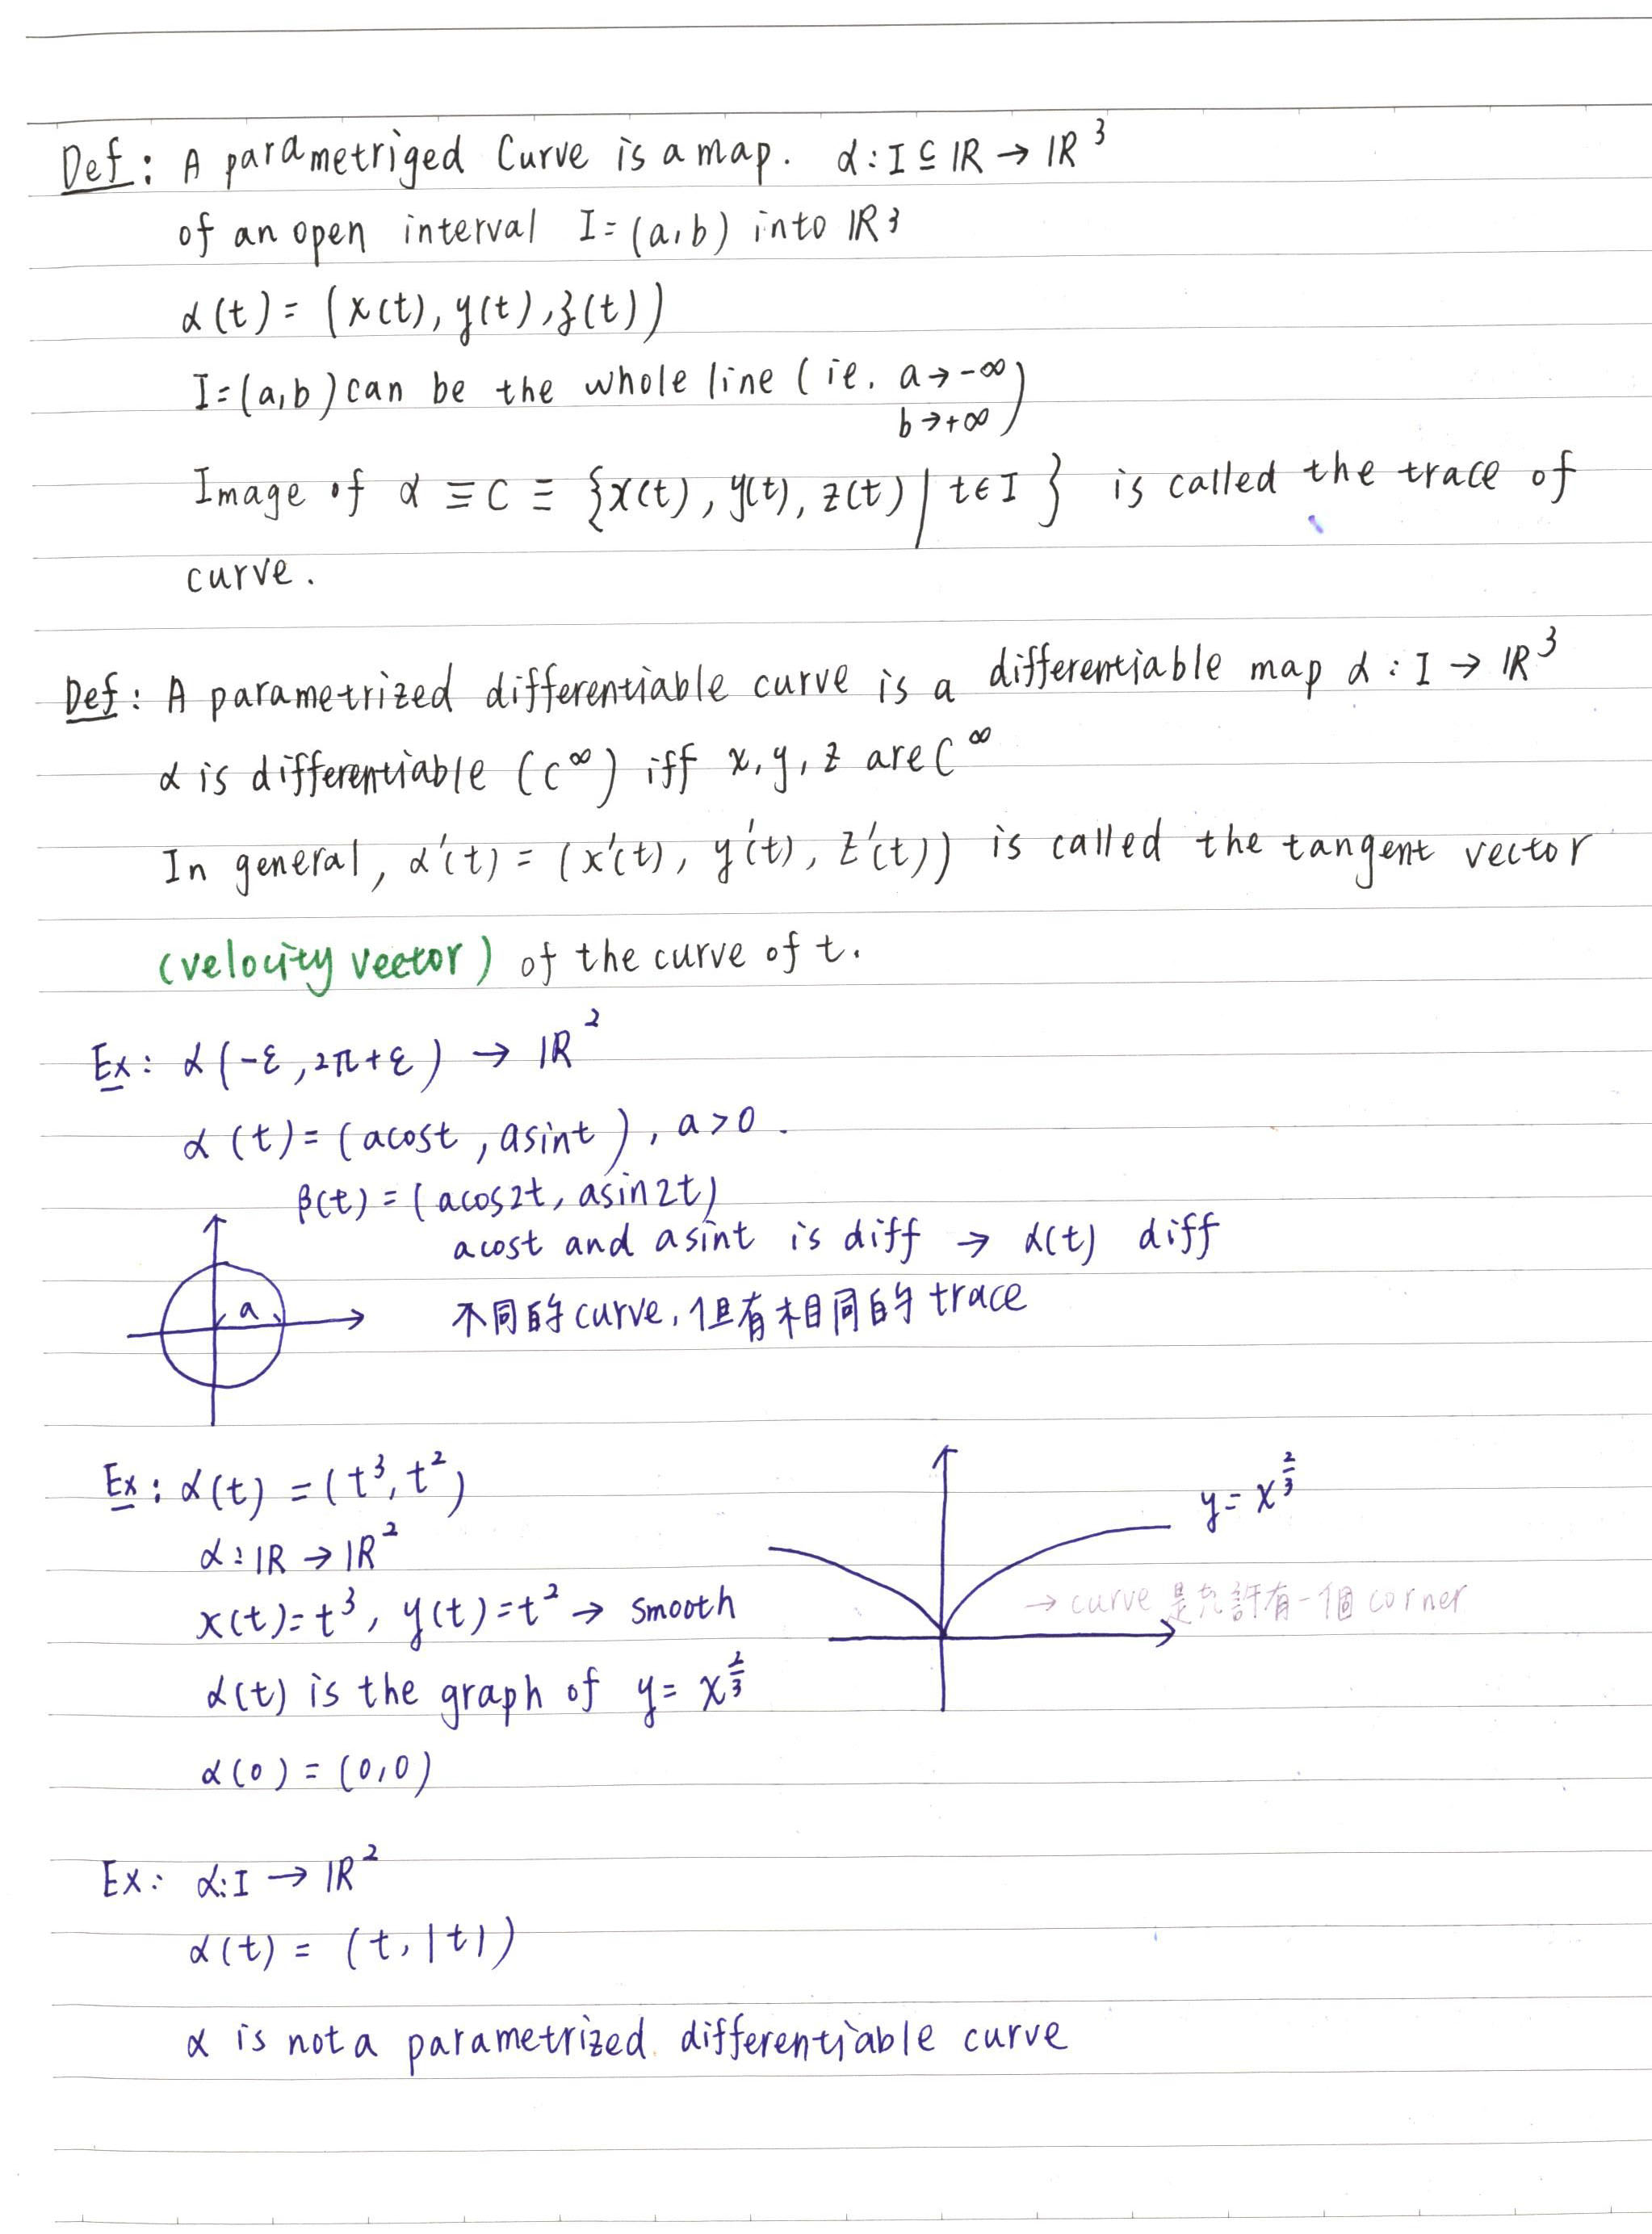 Def: A parametriged Curve is a map. α: I ⊆ ℝ → ℝ³
of an open interval I=(a,b) into ℝ³
α(t) = (x(t), y(t), z(t))
I=(a,b) can be the whole line (ie. a→-∞
b→+∞)
Image of α ≡ C ≡ {x(t), y(t), z(t) | t∈I } is called the trace of
curve.
Def: A parametrized differentiable curve is a differentiable map α: I → ℝ³
α is differentiable (C^∞) iff x, y, z are C^∞
In general, α'(t) = (x'(t), y'(t), z'(t)) is called the tangent vector
(velocity vector) of the curve of t.
Ex: α(-ε, 2π+ε) → ℝ²
α(t) = (acost, asint), a>0.
β(t) = (acos2t, asin2t)
acost and asint is diff → α(t) diff
a
不同的curve,但有相同的trace
Ex: α(t) = (t³, t²)
y = x^{2/3}
α: ℝ → ℝ²
x(t)=t³, y(t)=t² → smooth
→ curve 是允許有一個corner
α(t) is the graph of y = x^{2/3}
α(0) = (0,0)
Ex: α: I → ℝ²
α(t) = (t, |t|)
α is not a parametrized differentiable curve